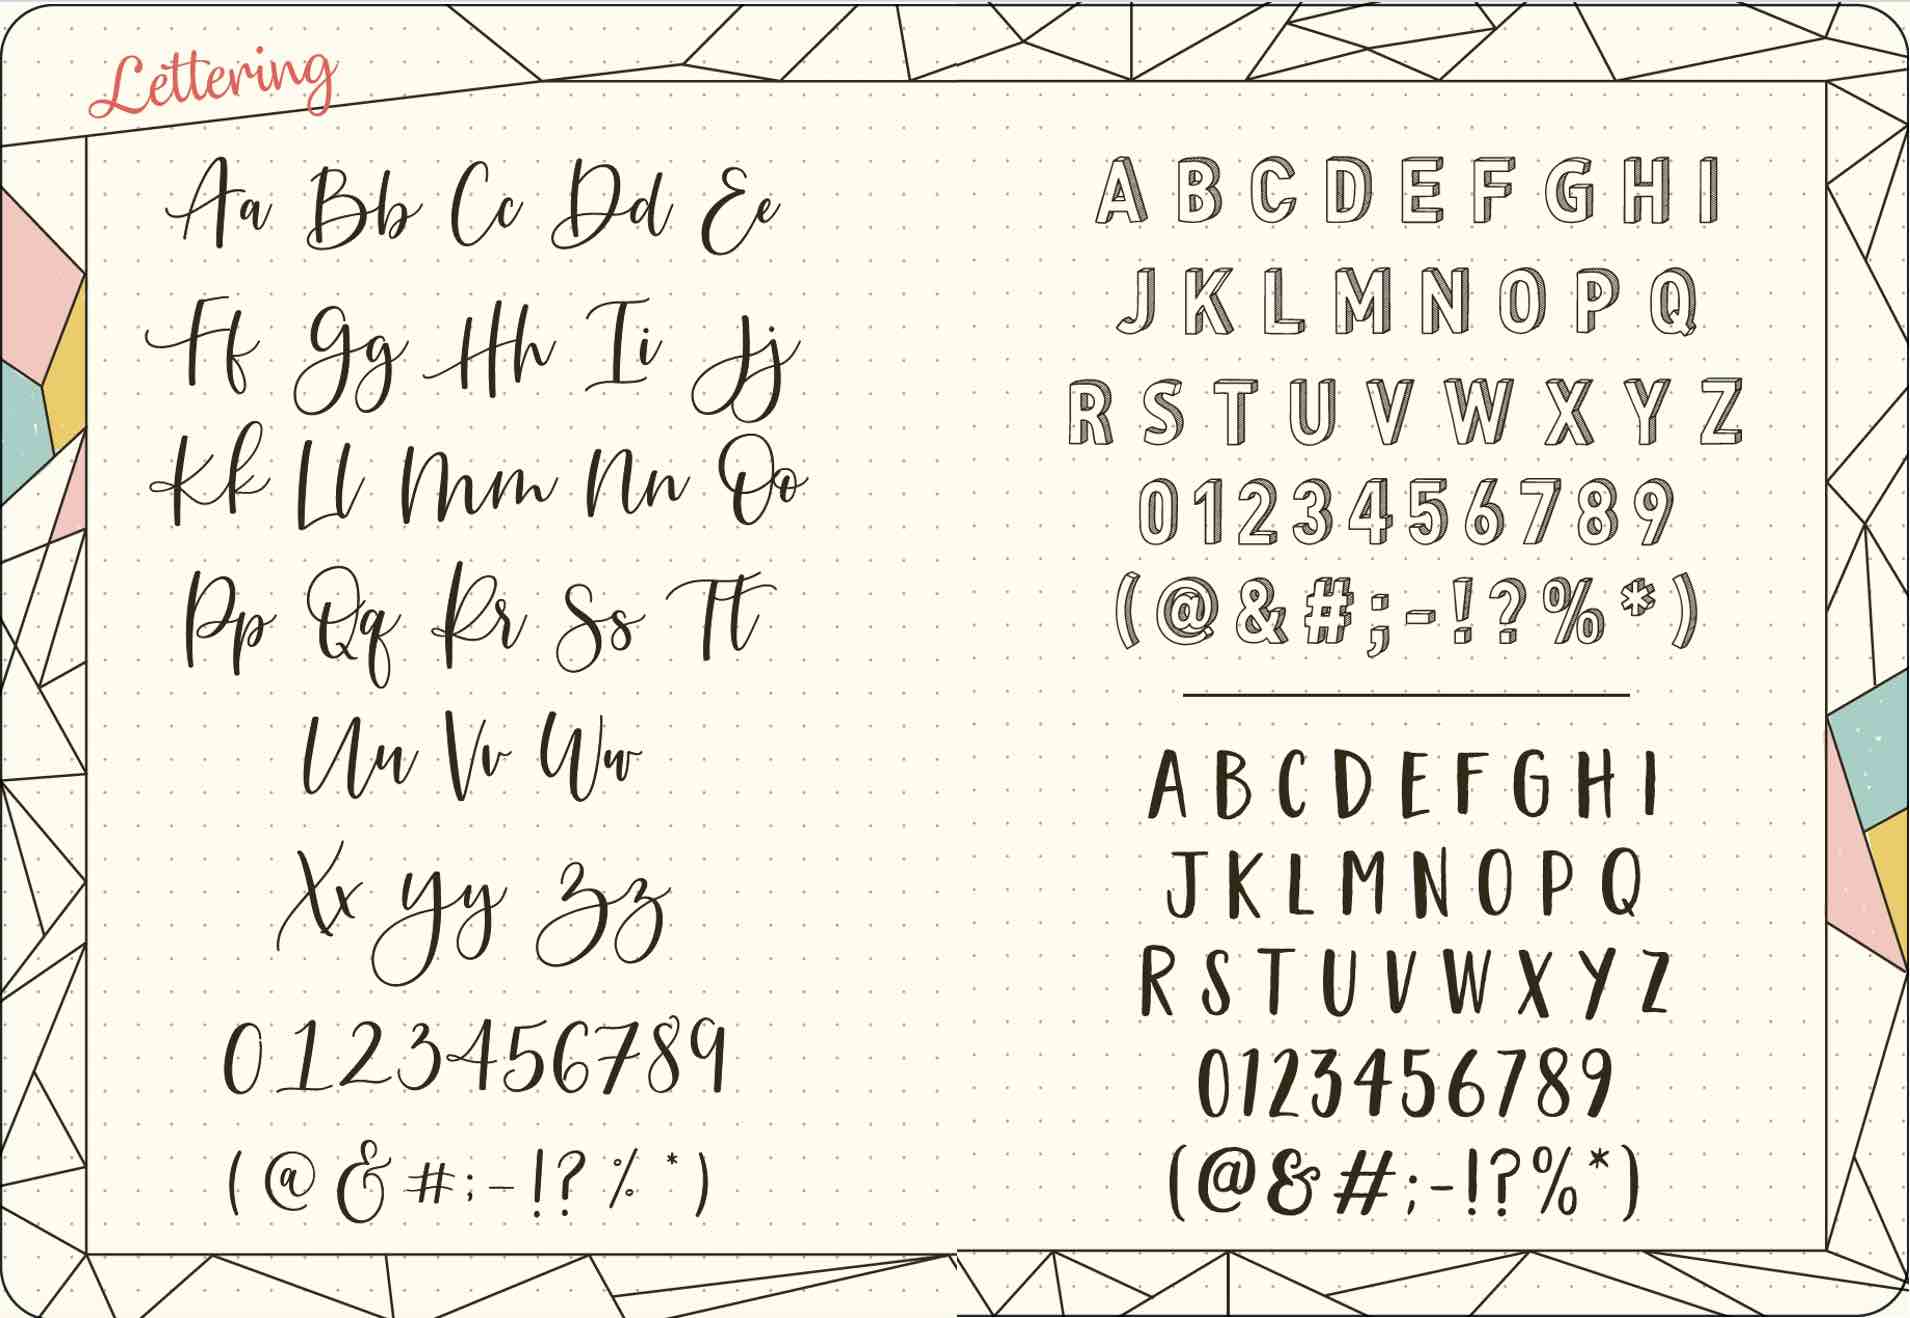 Lettering
Aa Bb Cc Dd Ee
Ff Gg Hh Ii Jj
Kk Ll Mm Nn Oo
Pp Qq Rr Ss Tt
Uu Vv Ww
Xx Yy Zz
0123456789
(@&#;-!?%*)
A B C D E F G H I
J K L M N O P Q
R S T U V W X Y Z
0123456789
(@&#;-!?%*)
A B C D E F G H I
J K L M N O P Q
R S T U V W X Y Z
0123456789
(@&#;-!?%*)